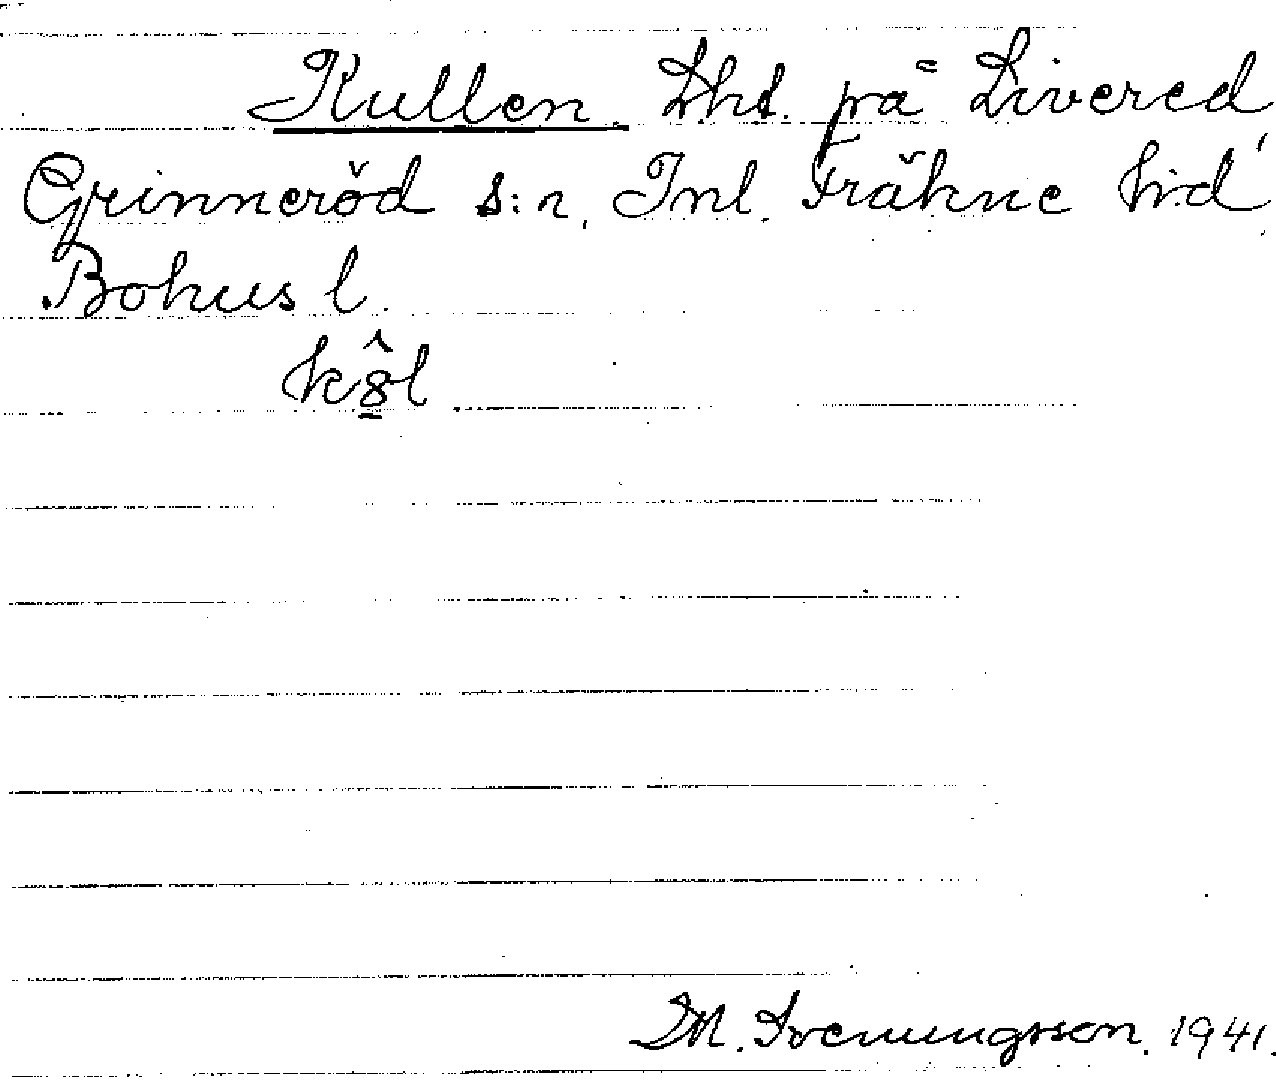 Kullen. Lht. på Livered,
Grinneröd s:n, Inl. Fräkne hd
Bohus l.
k8̂l
M. Svenungsson. 1941.